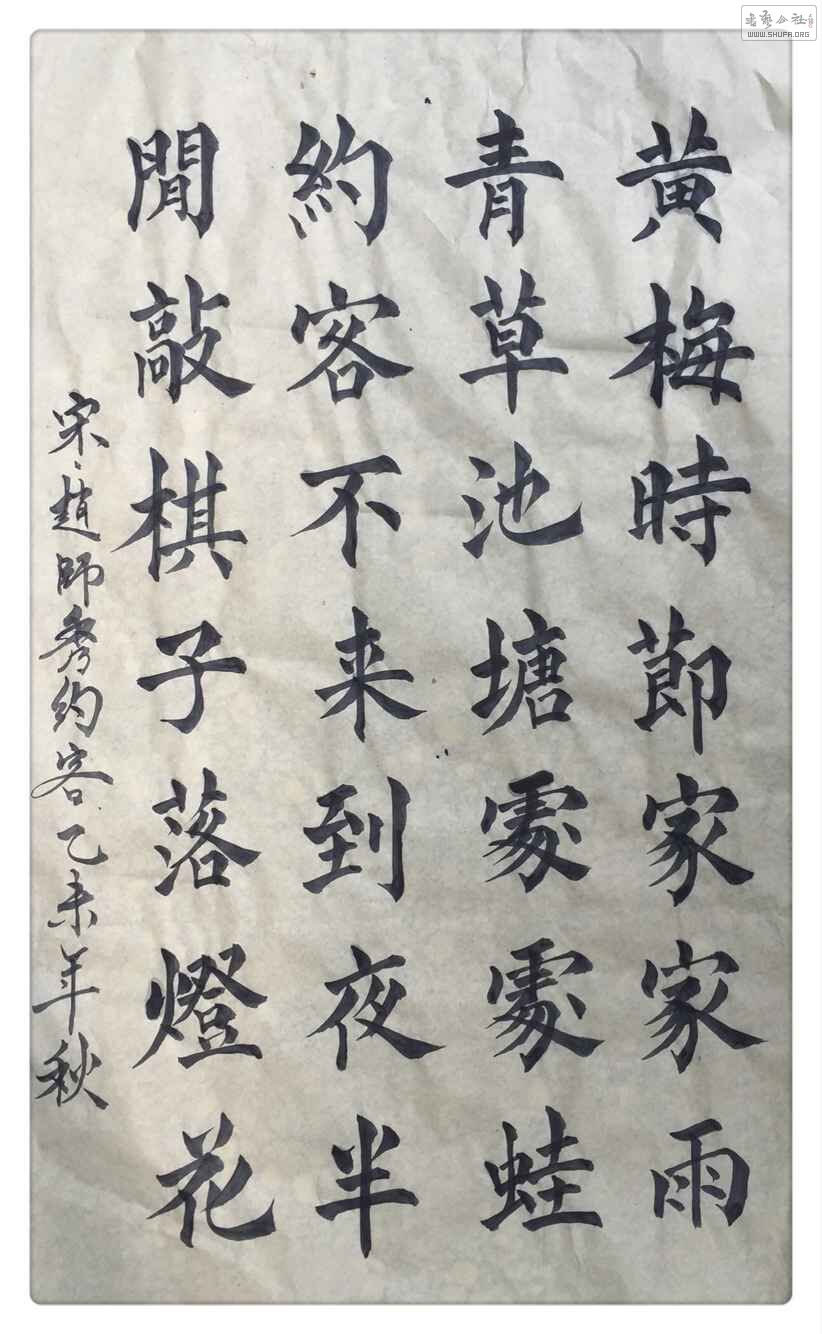 黄梅時莭家家雨
青草池塘處處蛙
約客不来到夜半
閒敲棋子落燈花
宋趙師秀約客乙未年秋
WWW.SHUFA.ORG